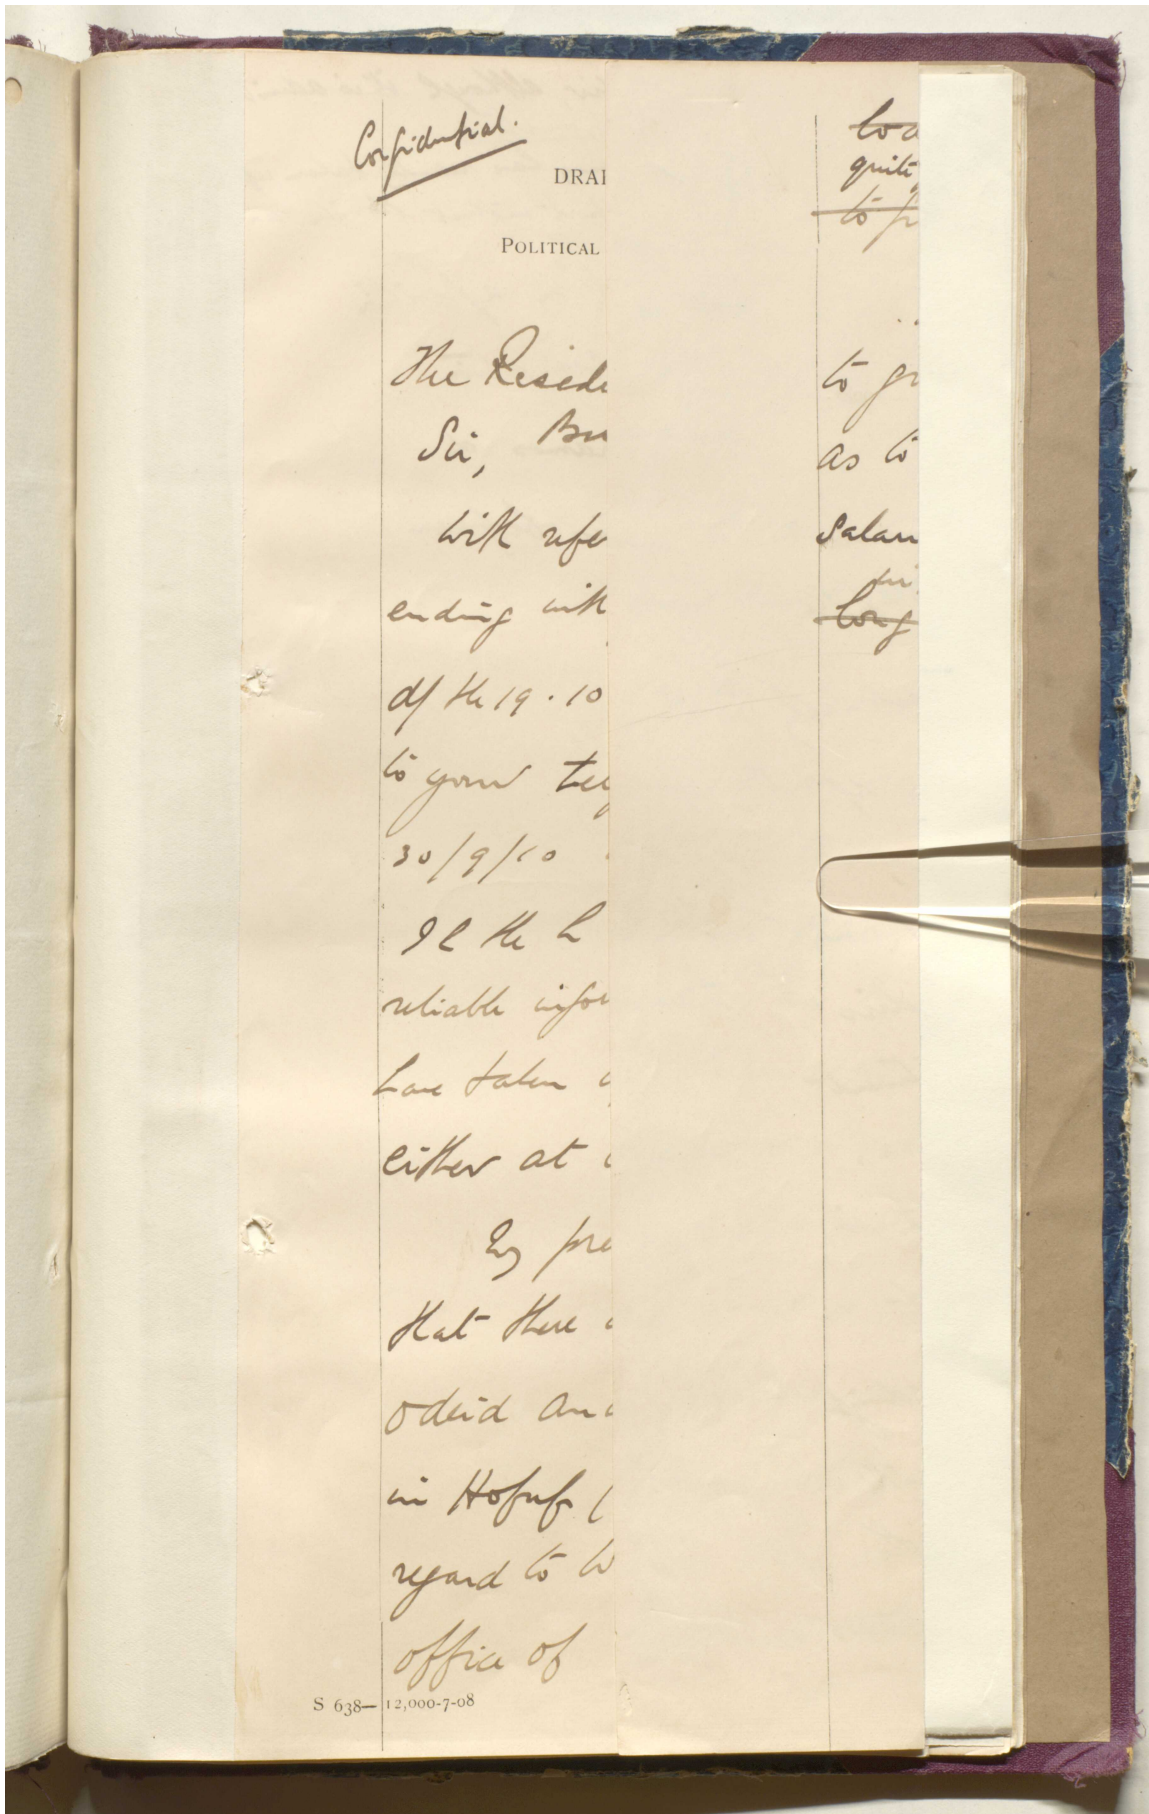 Confidential.
DRA
POLITICAL
The Reside
Sir,
with refe
ending with
d/ the 19.10
to your
30/9/10
reliable infor
have taken
either at
pre
that there
Odeid an
in Hofuf
regard to
office of
S 638—12,000-7-08
quite
to
to
as to
Salar
long